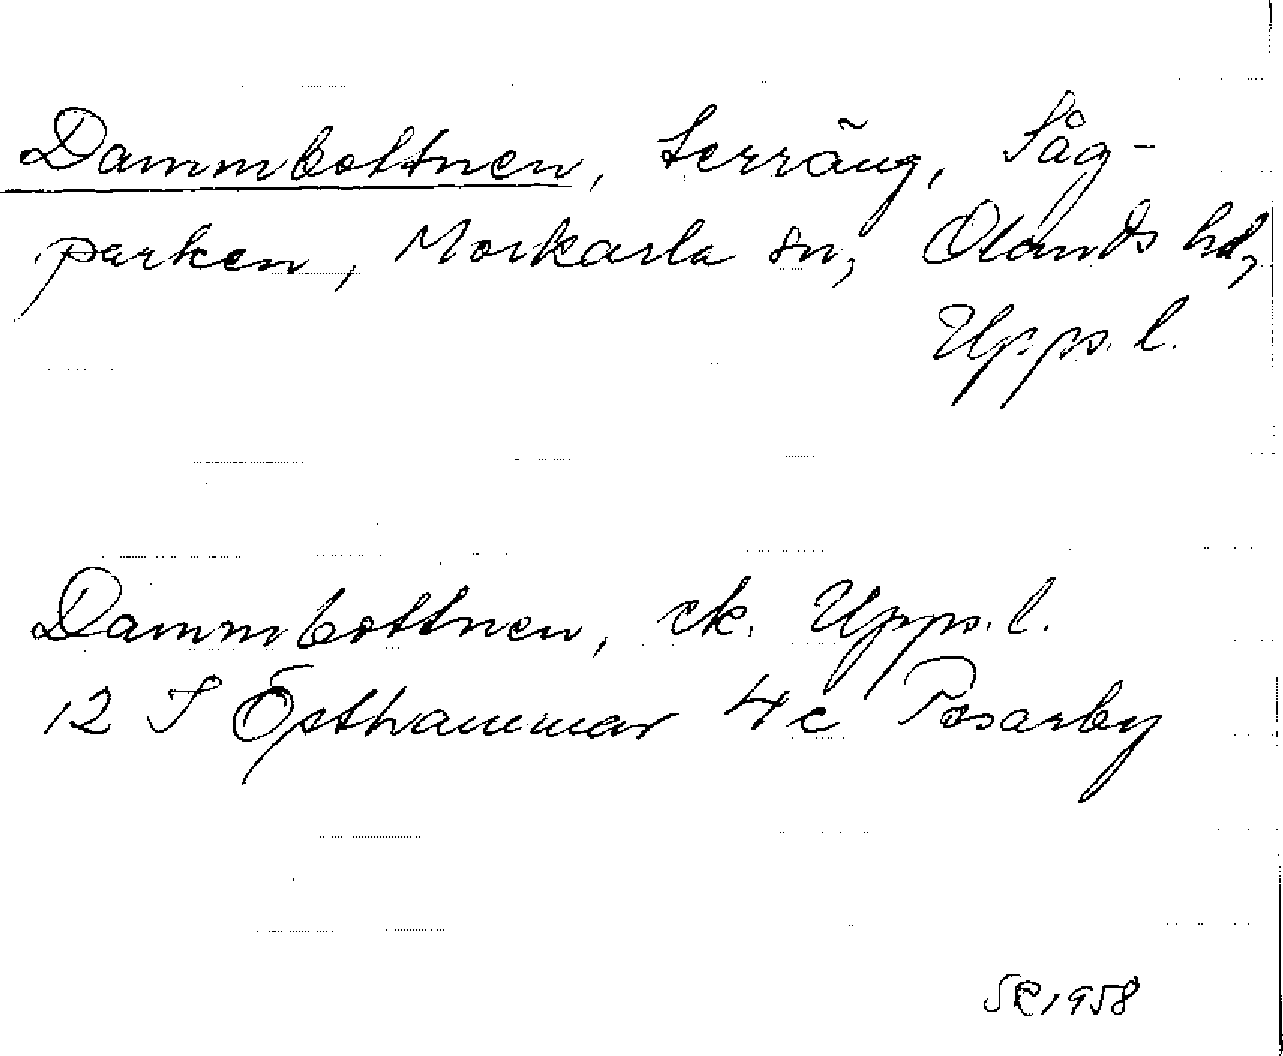 Dammbottnen, terräng, Såg-
parken, Morkarla sn, Olands hd,
Upps. l.
Dammbottnen, ek. Upps. l.
12 I Östhammar 4c Posarby
1958